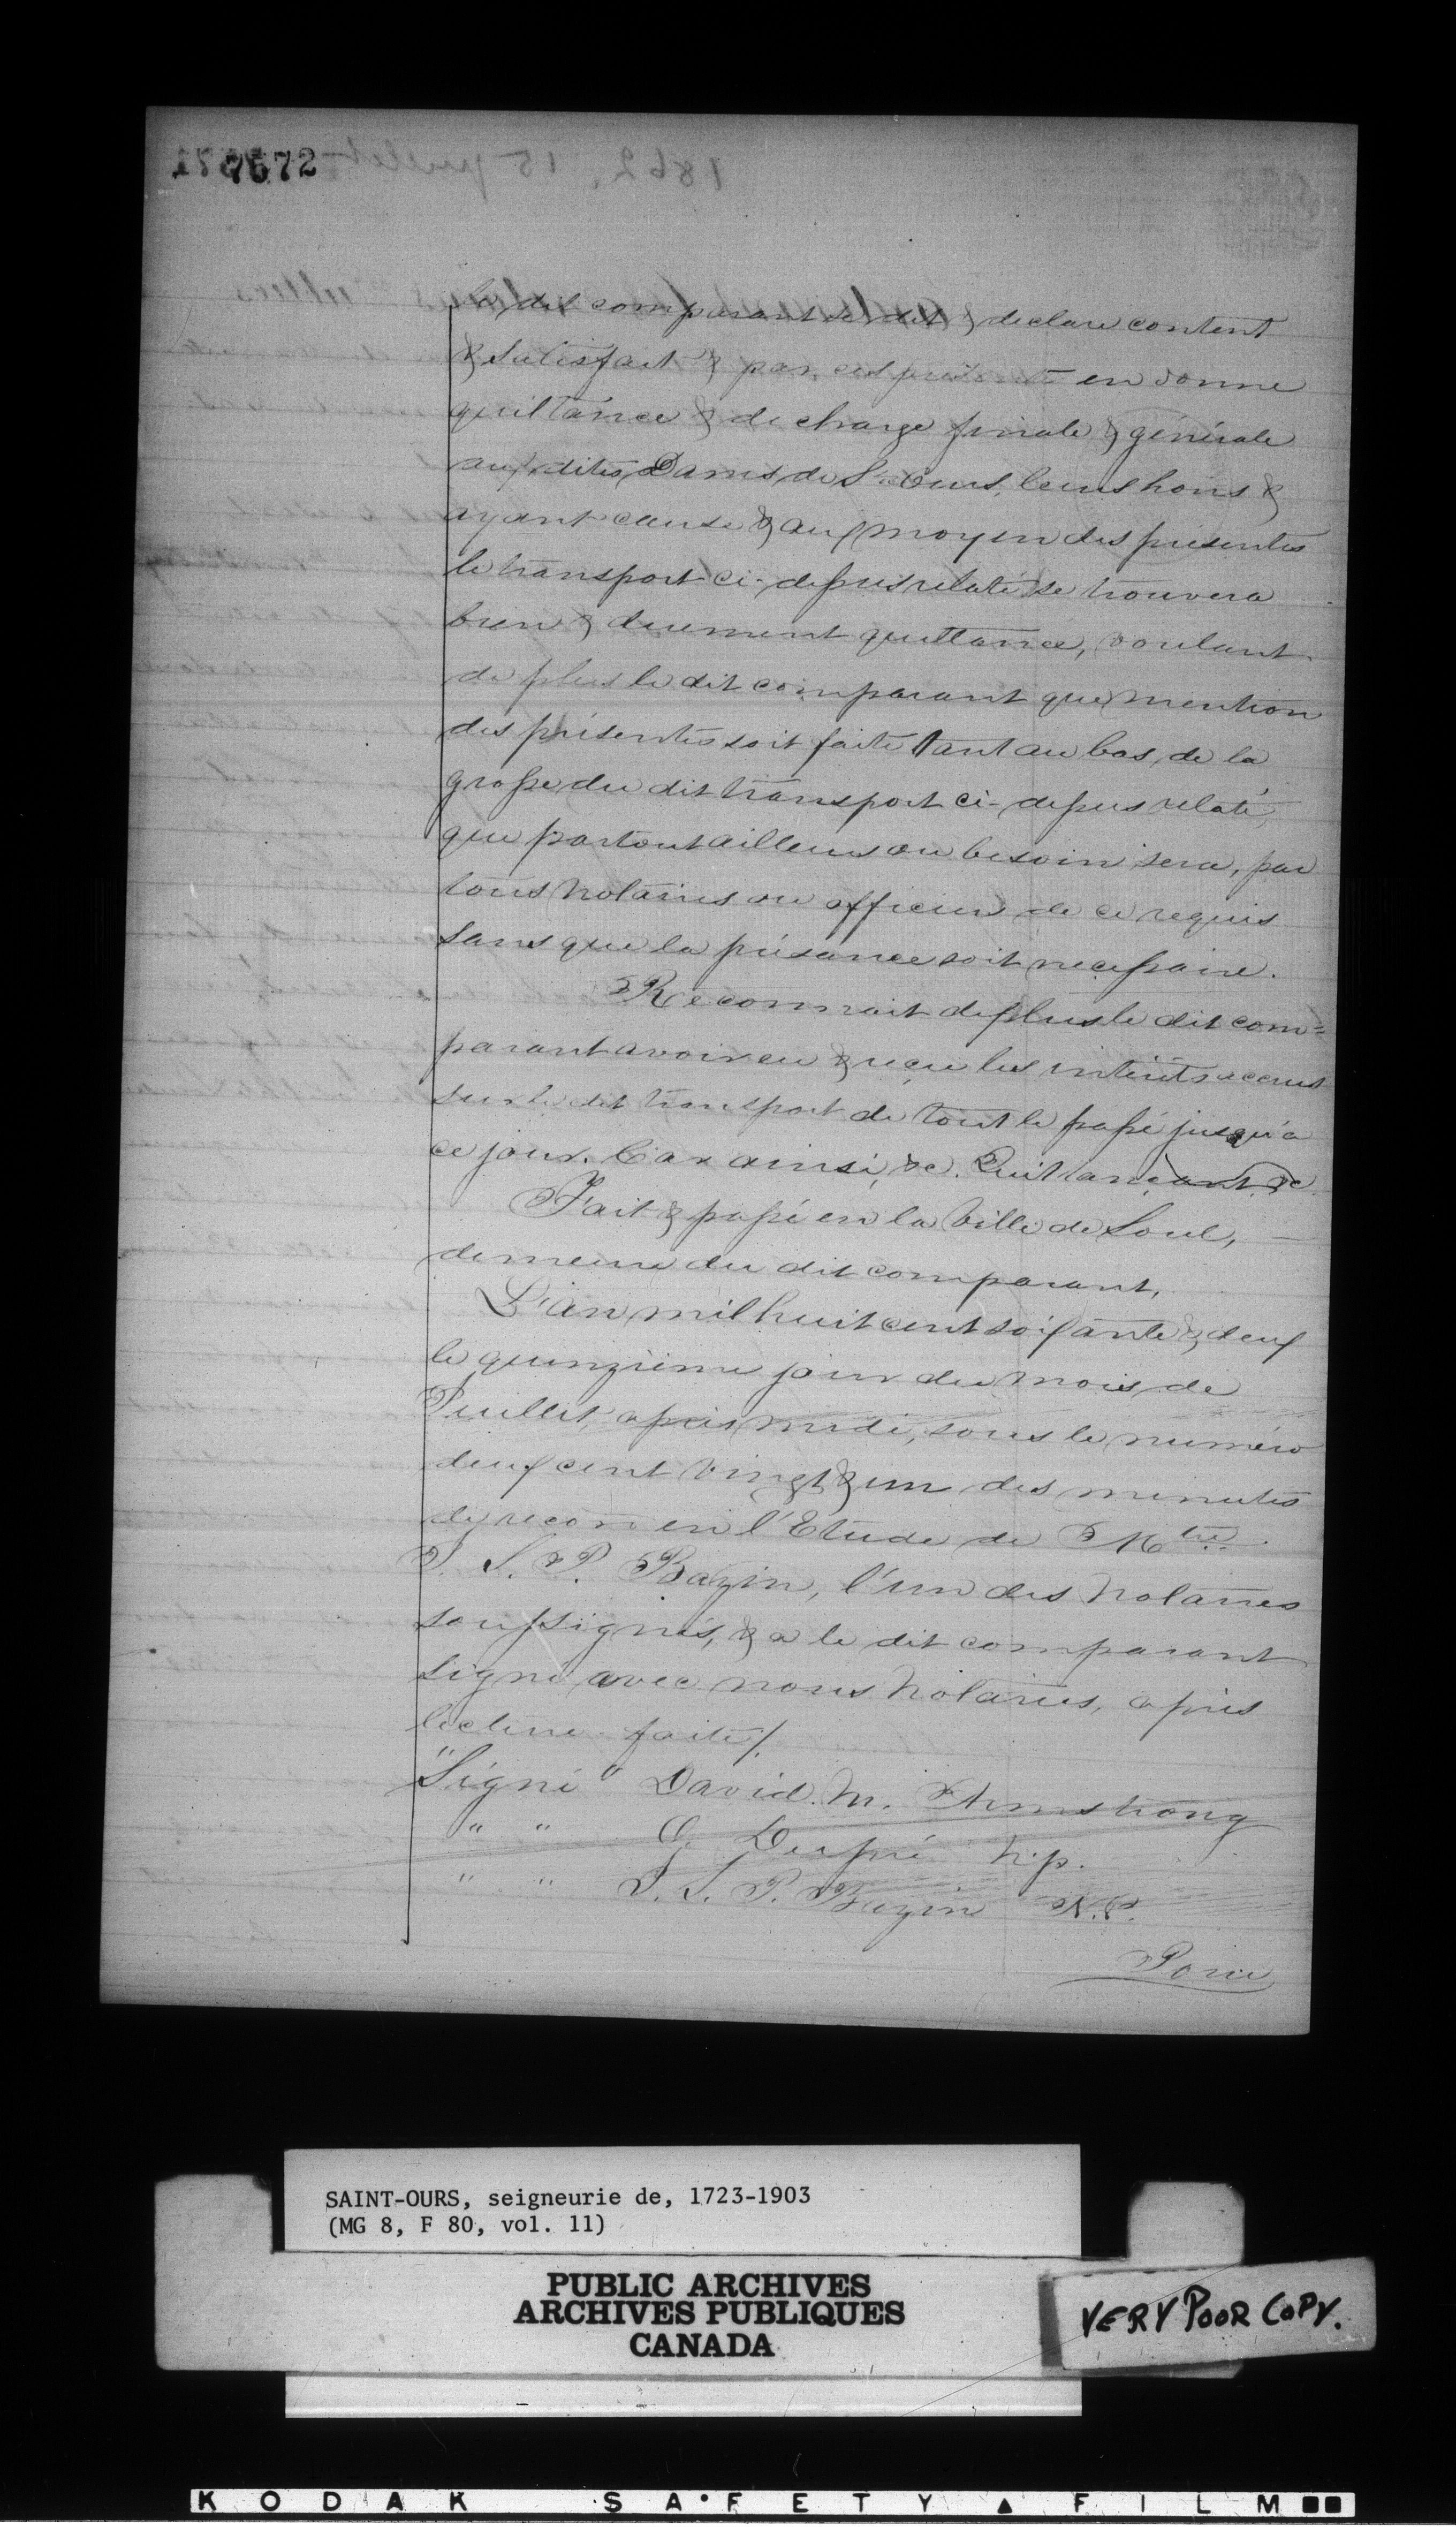 7572
le dit comparant se dit & declare content
& satisfait & par ces présentes en donne
quittance & décharge finale & générale
aux dites Dames de St. Ours, leurs hoirs &
ayant cause & au moyen des présentes
le transport ci-dessus relaté se trouvera
bien & duement quittancé, voulant
de plus le dit comparant que mention
des présentes soit faite tant au bas de la
grosse du dit transport ci-dessus relaté,
que partout ailleurs ou besoin sera, par
tous Notaires ou officiers de ce requis
sans que la présance soit necessaire.
Reconnait de plus le dit com=
parant avoir eu & reçu les intérêts accrus
sur le dit transport de tout le passé jusqu'à
ce jour. Car ainsi, &c. Quittançant &c
Fait & passé en la Ville de Sorel,
demeure du dit comparant,
L'an mil huit cent soixante & deux
le quinzième jour du mois de
Juillet, après midi, sous le numéro
deux cent vingt & un des minutes
de recors en l'Etude de Mtre.
J. S. P. Bazin, l'un des Notaires
soussignés, & a le dit comparant
signé avec nous Notaires, après
lecture faite/.
"Signé" David. M. Armstrong
" " G. Dupré N.p.
" " J. S. P. Bazin N.P.
Pour
SAINT-OURS, seigneurie de, 1723-1903
(MG 8, F 80, vol. 11)
PUBLIC ARCHIVES
ARCHIVES PUBLIQUES
CANADA
VERY POOR COPY.
KODAK SAFETY ▲ FILM